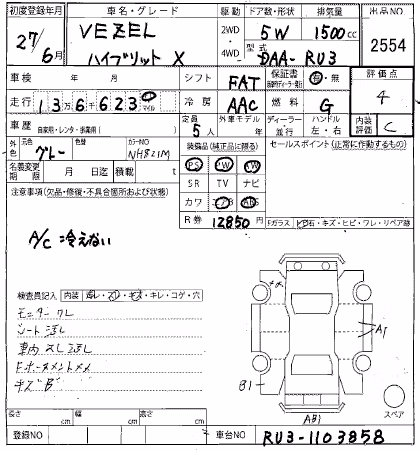 初度登録年月 車名・グレード 駆動 ドア数・形状 排気量 出品NO
27/6月 VEZEL ハイブリット X 2WD・4WD 5W 1500cc 2554
型式 DAA-RU3
車検 年 月 シフト FAT 保証書 有・無 評価点 4
走行 13万6千623 km マイル 冷房 AAC 燃料 G
車歴 自家用・レンタ・事業用( ) 定員 5人 外車モデル 年 ディーラー・並行 ハンドル 左・右 内装評価 C
外色 元色 グレー 色替 カラーNO NH821M 装備品(純正品に限る) セールスポイント(正常に作動するもの)
名義変更期限 月 日迄 積載 t PS PW AW
注意事項(欠品・修復・不具合箇所および状態) SR TV ナビ
カワ エアB ABS
R券 12850円 Fガラス 飛石・キズ・ヒビ・ワレ・リペア跡
A/C 冷えない
検査員記入 内装 汚レ・スレ・キズ・キレ・コゲ・穴
モニター クレ
シート汚レ
車内スレ汚レ
キズ"B"
A1
B1
AB1
スペア
長さ cm 幅 cm 高さ cm
登録NO 車台NO RU3-1103858